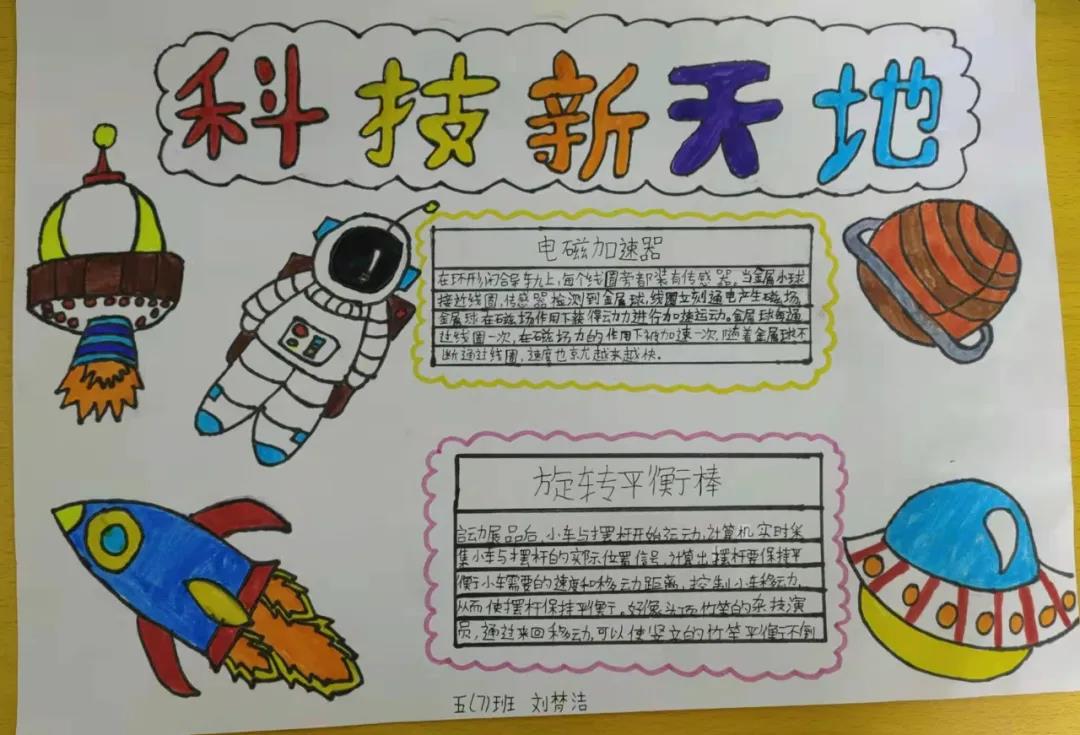 科技新天地
电磁加速器
在环形闭合导轨上,每个线圆旁都装有传感器,当金属小球
接近线圆,传感器检测到金属球,线圈立刻通电产生磁场,
金属球在磁场作用下获得动力进行加速运动。金属球每通
过线圆一次,在磁场力的作用下被加速一次,随着金属球不
断通过线圈,速度也京尤越来越快。
旋转平衡棒
启动展品后,小车与摆杆开始运动,计算机实时采
集小车与摆杆的实际位置信号,计算出摆杆要保持平
衡小车需要的速度和移动距离,控制小车移动,
从而使摆杆保持平衡,好像头顶竹竿的杂技演
员,通过来回移动,可以使竖立的竹竿平衡不倒
五(7)班 刘梦洁